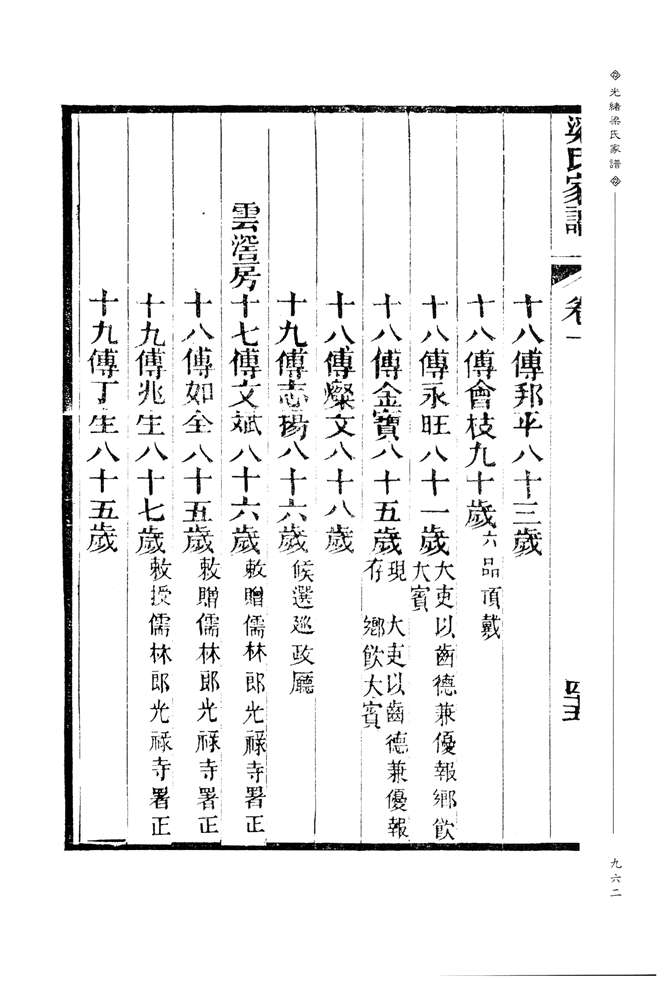 光緒梁氏家譜
梁氏家譜
卷一
四十五
十八傳邦平八十三歲
十八傳會枝九十歲 六品頂戴
十八傳永旺八十一歲 大吏以齒德兼優報鄉飲大賓
十八傳金寶八十五歲 現存 大吏以齒德兼優報鄉飲大賓
十八傳燦文八十八歲
十九傳志揚八十六歲 候選廵政廳
雲滘房十七傳文斌八十六歲 敕贈儒林郎光祿寺署正
十八傳如全八十五歲 敕贈儒林郎光祿寺署正
十九傳兆生八十七歲 敕授儒林郎光祿寺署正
十九傳丁生八十五歲
九六二